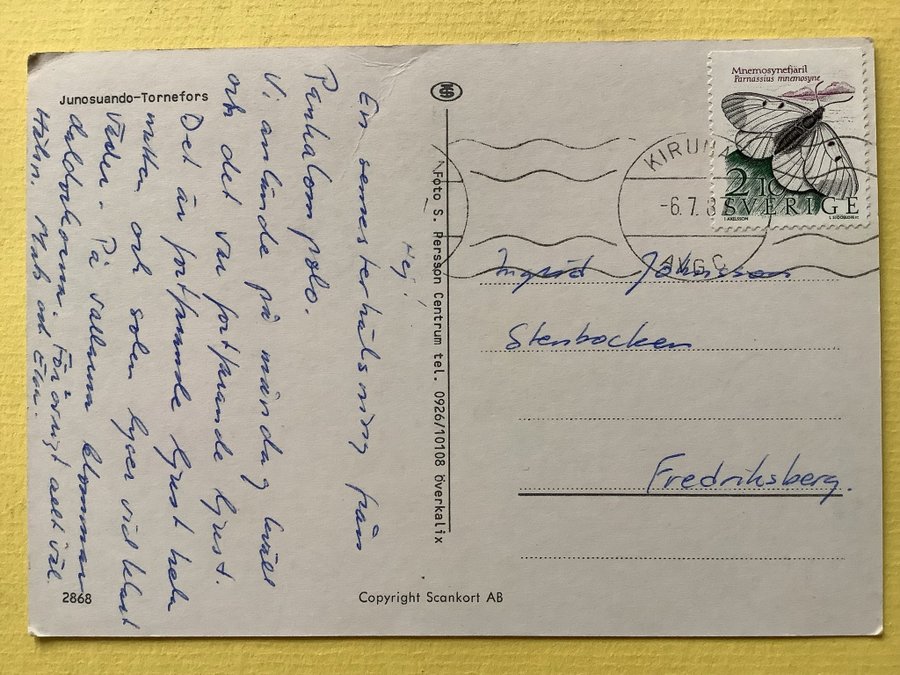 Junosuando-Tornefors
Hej!
En semesterhälsning från
Parhalompolo.
Vi anlände på måndag kväll
och det var fortfarande ljust.
Det är fortfarande ljust hela
natten och solen lyser vid klart
väder. På vallarna blommar
daldockorna. För övrigt allt väl
Hälsn. Mats och Elna.
2868
Foto S. Persson Centrum tel. 0926/10108 Överkalix
Copyright Scankort AB
Mnemosynefjäril
Parnassius mnemosyne
2 10
SVERIGE
KIRUNA
-6.7.8
AVG C
Ingrid Johansson
Stenbocken
Fredriksberg.